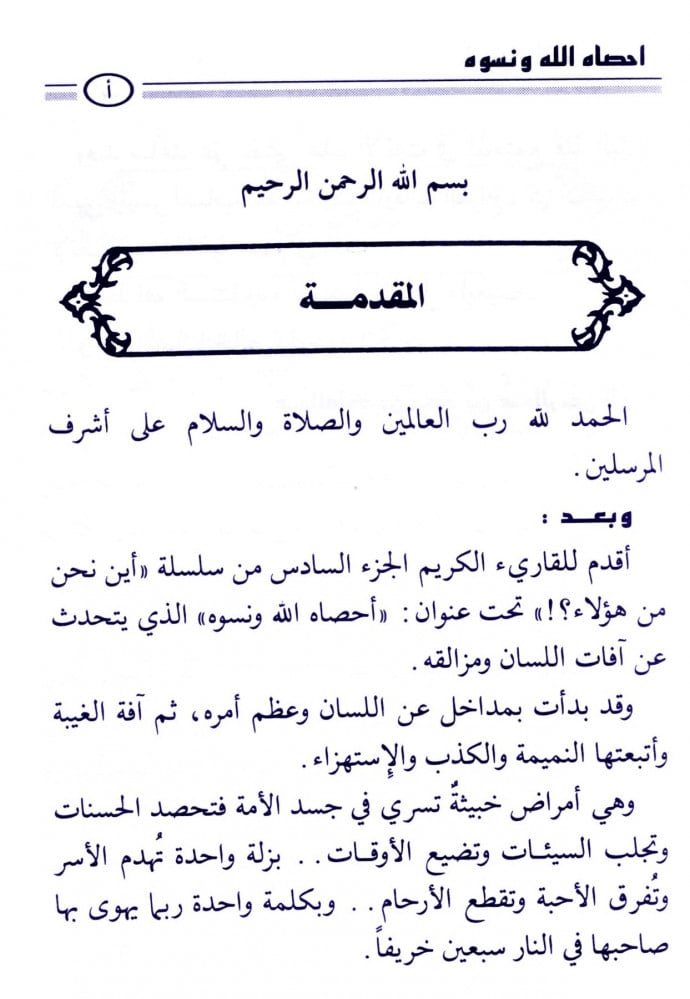 احصاه الله ونسوه
أ
بسم الله الرحمن الرحيم
المقدمـــة
الحمد لله رب العالمين والصلاة والسلام على أشرف
المرسلين.
وبعــد :
أقدم للقاريء الكريم الجزء السادس من سلسلة «أين نحن
من هؤلاء؟!» تحت عنوان: «أحصاه الله ونسوه» الذي يتحدث
عن آفات اللسان ومزالقه.
وقد بدأت بمداخل عن اللسان وعظم أمره، ثم آفة الغيبة
وأتبعتها النميمة والكذب والإِستهزاء.
وهي أمراض خبيثةٌ تسري في جسد الأمة فتحصد الحسنات
وتجلب السيئـات وتضيع الأوقـات.. بزلة واحدة تُهدم الأسر
وتُفرق الأحبة وتقطع الأرحام.. وبكلمة واحدة ربما يهوى بها
صاحبها في النار سبعين خريفاً.